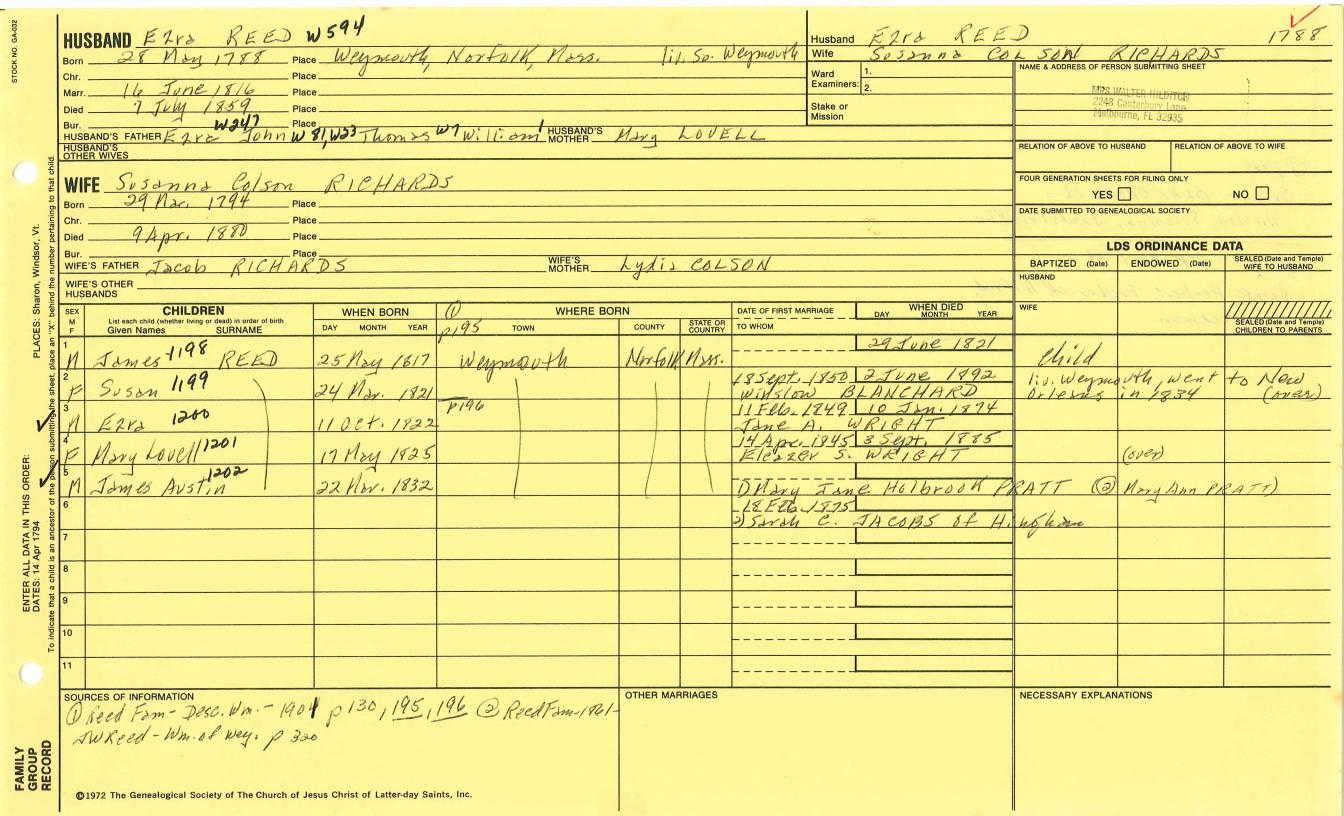 STOCK NO. GA-032
HUSBAND Ezra REED W594
Born 28 May 1788 Place Weymouth, Norfolk, Mass. liv. So. Weymouth
Chr. Place
Marr. 16 June 1816 Place
Died 7 July 1859 Place
Bur. Place
W247
HUSBAND'S FATHER Ezra John W81, W23 Thomas W7 William 1 HUSBAND'S MOTHER Mary LOVELL
HUSBAND'S OTHER WIVES
WIFE Susanna Colson RICHARDS
Born 29 Mar. 1794 Place
Chr. Place
Died 9 Apr. 1880 Place
Bur. Place
WIFE'S FATHER Jacob RICHARDS WIFE'S MOTHER Lydia COLSON
WIFE'S OTHER HUSBANDS
Husband Ezra REED 1788
Wife Susanna COLSON RICHARDS
Ward Examiners: 1.
2.
Stake or Mission
NAME & ADDRESS OF PERSON SUBMITTING SHEET
MRS WALTER HILDITCH
2248 Canterbury Lane
Melbourne, FL 32935
RELATION OF ABOVE TO HUSBAND RELATION OF ABOVE TO WIFE
FOUR GENERATION SHEETS FOR FILING ONLY
YES NO
DATE SUBMITTED TO GENEALOGICAL SOCIETY
LDS ORDINANCE DATA
BAPTIZED (Date) ENDOWED (Date) SEALED (Date and Temple) WIFE TO HUSBAND
HUSBAND
WIFE
SEALED (Date and Temple) CHILDREN TO PARENTS
SEX M F
CHILDREN
List each child (whether living or dead) in order of birth
Given Names SURNAME
WHEN BORN
DAY MONTH YEAR
① p195
WHERE BORN
TOWN COUNTY STATE OR COUNTRY
DATE OF FIRST MARRIAGE
TO WHOM
WHEN DIED
DAY MONTH YEAR
1 M James 1198 REED 25 May 1817 Weymouth Norfolk Mass. 29 June 1821 Child
2 F Susan 1199 24 Mar. 1821 18 Sept. 1850 2 June 1892 liv. Weymouth, went to New
Winslow BLANCHARD Orleans in 1834 (over)
p196
3 M Ezra 1200 11 Oct. 1822 11 Feb. 1849 10 Jan. 1894
Jane A. WRIGHT
4 F Mary Lovell 1201 17 May 1825 14 Apr. 1845 3 Sept. 1885
Eleazer S. WRIGHT (over)
5 M James Austin 1202 22 Mar. 1832 1) Mary Jane Holbrook PRATT (② Mary Ann PRATT)
6 18 Feb. 1875
2) Sarah C. JACOBS of Hingham
7
8
9
10
11
SOURCES OF INFORMATION
① Reed Fam - Desc. Wm. - 1901 p 130, 195, 196 ② Reed Fam - 1861 -
JWReed - Wm. of Wey. p 320
OTHER MARRIAGES
NECESSARY EXPLANATIONS
©1972 The Genealogical Society of The Church of Jesus Christ of Latter-day Saints, Inc.
FAMILY GROUP RECORD
ENTER ALL DATA IN THIS ORDER:
DATES: 14 Apr 1794
PLACES: Sharon, Windsor, Vt.
To indicate that a child is an ancestor of the person submitting the sheet, place an "X" behind the number pertaining to that child.